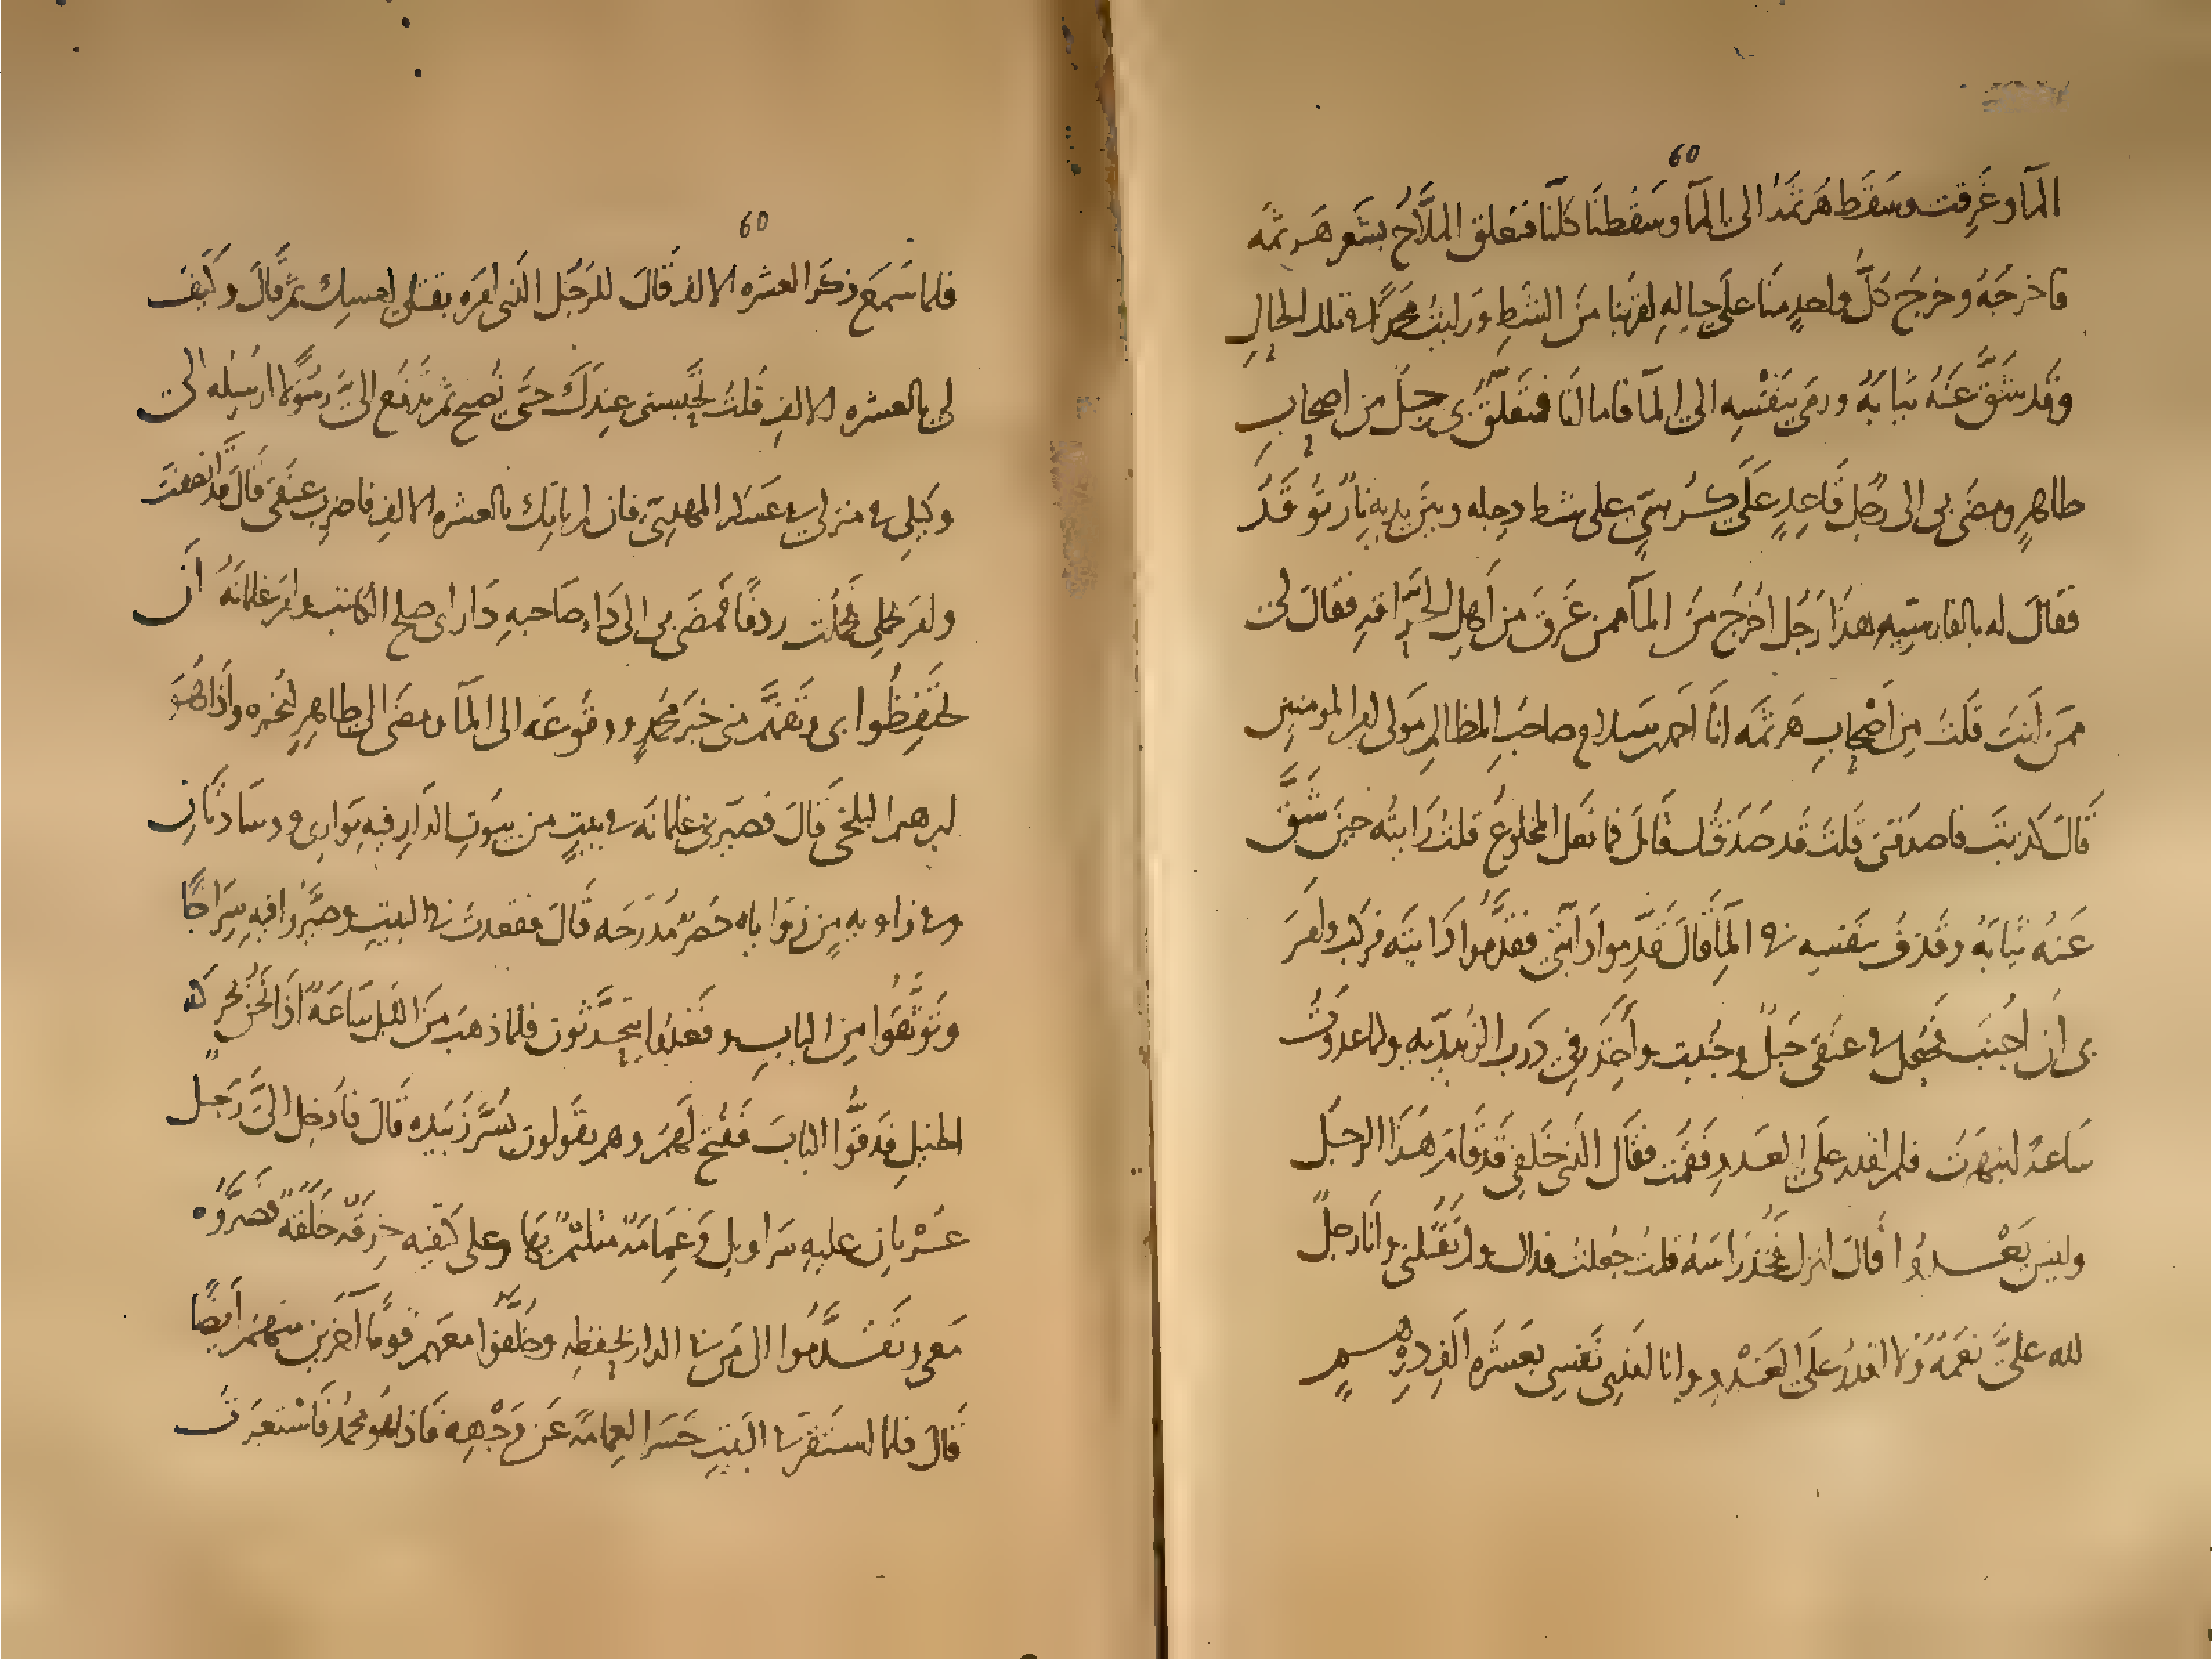 60
المآء وغَرِقت وسَقَط هَرثمَة الى المآء وسَقطنَا كلّنا فتعلق الملَّاحُ بشَعر هَرثمَه
فاخرجَهُ وخرجَ كلُّ واحدٍ منّا على حيالهِ لقربنا مِنَ الشطِ ورايتُ محمدًا في تلك الحالِ
وقد شقَّ عَنهُ ثيابَهُ ورمى بنفسِه الى المآ فاما انَا فتعلّقَ بى رجلٌ من اصحابِ
طاهرٍ ومضى بى الى رجُلٍ قاعِدٍ عَلَى كُرسىٍّ على شط دجله وبينَ يديهِ نارٌ تُوقَدُ
فقالَ له بالفارسيّهِ هذا رَجُل اخرجَ مِنَ المآ ممن غَرِقَ من اهلِ الحرّاقهِ فقالَ لى
ممَن اَنتَ قلتُ مِن اَصحابِ هَرثمَه انَا احمد بن سلام صاحبُ المظالم مَولى امير المومنين
قالَ كذبتَ فاصدقنى قلتُ قد صَدَقتُك قالَ فما فعَل المخلوعُ قلتُ رَايتُه حينَ شَقَّ
عَنهُ ثيابَهُ وقذفَ بنفسِه في المآ قالَ قَدّموا دَابّتى فقدَّموا دَابّته فركب وامَرَ
بى ان اُجنبَ فجُعِل في عنقى حَبلٌ وجُنبت وأَخذَ في دَرب الرُّشيديّه ولما عدوتُ
سَاعةً انبهرتُ فلم اقدر علَى العدوِ فقُمت فقالَ الذى خَلفى قد قامَ هَذا الرجلُ
وليسَ يَعْدُوا قالَ انزل فخُذ رَاسَهُ قلتُ جُعلتُ فداك ولم تقتلنى وانَا رجلٌ
لله علىَّ نعمَةٌ ولا اقدرُ على العَدْوِ وانا افدِى نَفسِى بعَشرَه الفِ درهمٍ
60
فلما سَمعَ ذكرَ العشره الالاف قالَ للرَجُل الذى امرَه بقتلى امسِك ثمَّ قالَ وكيفَ
لى بالعشره الالفِ قلتُ تحبسنى عندَكَ حتَّى تُصبح ثم تدفَع الىَّ رسُولًا ارسِله الى
وكيلِى في منزلى في عَسكر المهدىّ فان لم ياتِك بالعشره الالفِ فاضرِب عنقى قالَ قد انصفتَ
وامَر بحملِى فحُملت ردفًا فمضَى بى الى دَار صَاحبهِ دَار ابى صلح الكاتب وامَرَ غلمانَهُ اَن
يحتفِظُوا بى وتفهَّم منى خبَرَ محمدٍ ووقُوعَه الى المآ ومضَى الى طاهرٍ ليُخبره وإذا هُوَ
ابرهيم البلخى قالَ فصيّرنى غلمانَه في بيتٍ من بيوتِ الدَارِ فيهِ بَوارى ووسَادتانِ
وفي زاويهٍ مِن زوَاياه حُصرٌ مُدَرجَه قالَ فقعدتُ في البيتِ وصَيَّروا فيهِ سِرَاجًا
وتوثَّقُوا مِن البابِ وقعَدُوا يتحدَّثون فلما ذهبَ مِنَ الليل سَاعَةٌ اذَا نحنُ بحركه
الخيلِ فدَقُّوا البابَ ففُتحَ لَهمَ وهم يقولون يُسَرَّ زُبَيده قالَ فاُدخِل الىَّ رَجلٌ
عُرْيان عليهِ سَراويل وعِمَامَةٌ متلثّمٌ بها وعلى كتفيهِ خِرقةٌ خَلَقةٌ فصَيّروه
معى وتقدَّمُوا الى مَن في الدار بحفظِه وخلَّفوا معهم قومًا آخرين منهُم ايضًا
قالَ فلما استقرَّ في البَيتِ حَسَرَ العِمامَةَ عَن وَجْهِه فاذا هُو محمّد فَاسْتعبَرتُ